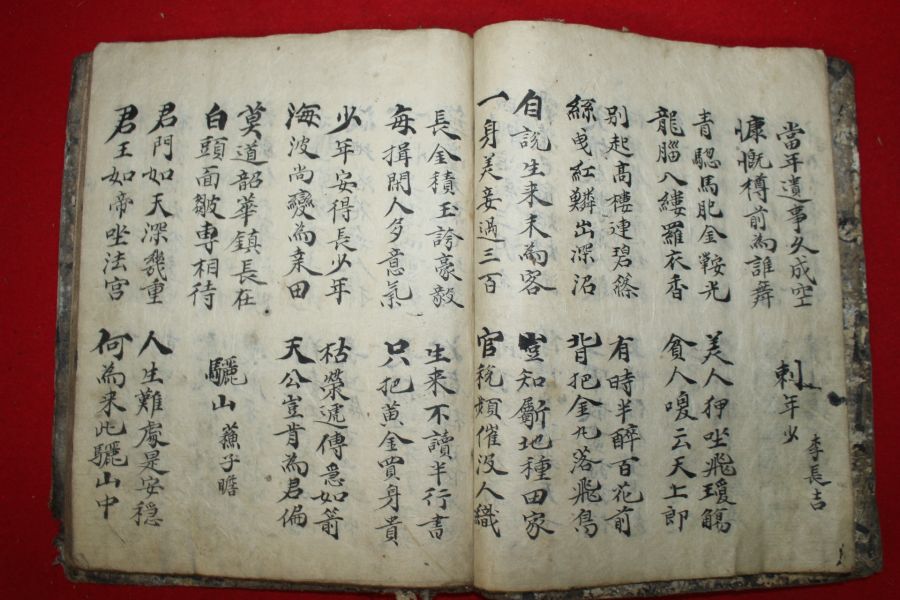 當年遺事久成空
慷慨樽前為誰舞
刺年少 李長吉
青驄馬肥金鞍光
龍腦入縷羅衣香
美人狎坐飛瓊觴
貧人喚云天上郎
別起高樓連碧篠
絲曳紅鱗出深沼
有時半醉百花前
背把金丸落飛鳥
自說生来未為客
一身美妾過三百
豈知斸地種田家
官稅頻催沒人織
長金積玉誇豪毅
每揖閑人多意氣
生来不讀半行書
只把黃金買身貴
少年安得長少年
海波尚變為桒田
枯榮遞傳急如箭
天公豈肯為君偏
莫道韶華鎮長在
白頭面皺專相待
驪山 蘓子瞻
君門如天深幾重
君王如帝坐法宮
人生難處是安穩
何為来此驪山中